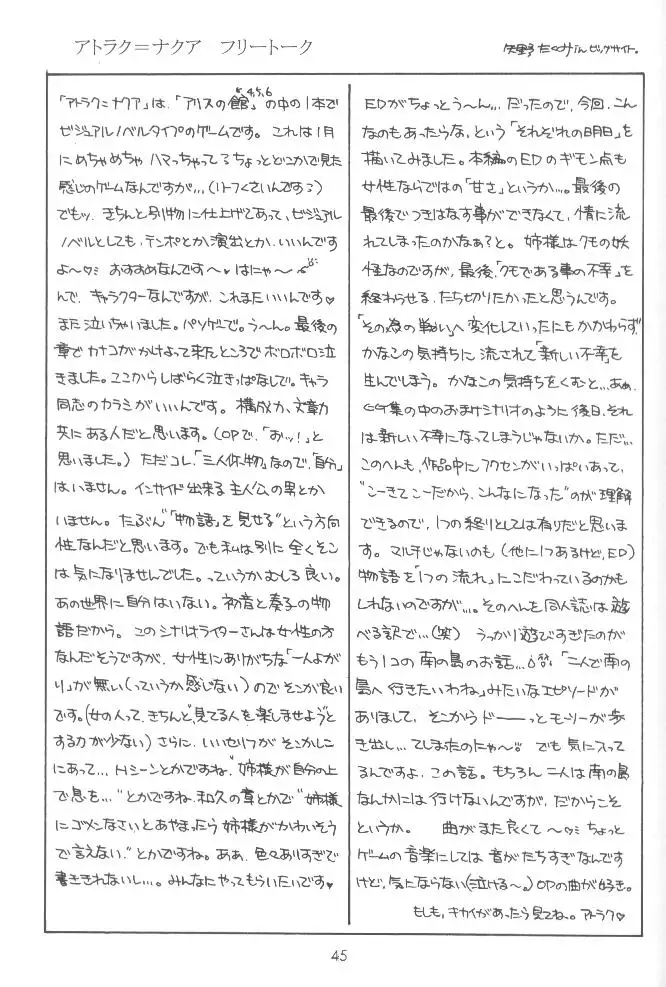 アトラク=ナクア フリートーク
矢野たくみ in ビッグサイト。
「アトラク=ナクア」は、「アリスの館」の中の1本で
4,5,6
ビジュアルノベルタイプのゲームです。これは1月
にめちゃめちゃハマっちゃってるちょっとどこかで見た
感じのゲームなんですが…、
でもッ、きちんと別物に仕上げてあって、ビジュアル
ノベルとしても、テンポとか演出とか、いいんです
よ〜♡ おすすめなんです〜♥はにゃ〜ん
んで、キャラクターなんですが、これまたいいんです♥
また泣いちゃいました。パソゲで。う〜ん。最後の
章でカナコがかけよって来たところでボロボロ泣
きました。ここからしばらく泣きっぱなしで。キャラ
同志のカラミがいいんです。構成力、文章力
共にある人だと思います。(OPで、「おッ!」と
思いました。)ただコレ、「三人称物」なので、「自分」
はいません。インサイド出来る主人公の男とか
いません。たぶん"「物語」を見せる"という方向
性なんだと思います。でも私は別に全くそこ
は気になりませんでした。っていうかむしろ良い。
あの世界に自分はいない。初音と奏子の物
語だから。このシナリオライターさんは女性の方
なんだそうですが、女性にありがちな「一人よが
り」が無い(っていうか感じない)のでそこが良い
です。(女の人って、きちんと"見てる人を楽しませよう"と
する力が少ない)さらに、いいセリフがそこかしこ
にあって…、Hシーンとかですね、"姉様が自分の上
で息を…"とかですね、和久の章とかで"姉様
にゴメンなさいとあやまったら姉様がかわいそう
で言えない。"とかですね。ああ、色々ありすぎで
書ききれないし…。みんなにやってもらいたいです♥
EDがちょっとう〜ん…だったので、今回、こん
なのもあったらな、という「それぞれの明日」を
描いてみました。本編のEDのギモン点も
女性ならではの「甘さ」というか…。最後の
最後でつきはなす事ができなくて、情に流
れてしまったのかなぁ?と。姉様はクモの妖
怪なのですが、最後、「クモである事の不幸」を
終わらせる、たち切りたかったと思うんです。
「その為の戦い」へ変化していったにもかかわらず、
かなこの気持ちに流されて「新しい不幸」を
生んでしまう。かなこの気持ちをくむと…あぁ、
CG集の中のおまけシナリオのように後日、それ
は新しい不幸になってしまうじゃないか。ただ…
このへんも、作品中にフクセンがいっぱいあって、
"こーきてこーだから、こんなになった"のが理解
できるので、1つの終りとしては有りだと思いま
す。マルチじゃないのも(他に1つあるけど、ED)
物語を「1つの流れ」にこだわっているのかも
しれないのですが…。そのへんを同人誌は遊
べる訳で…(笑) うっかり遊びすぎたのが
もう1コの南の島のお話…。「二人で南の
島へ行きたいわね」みたいなエピソードが
ありまして、そこからドーーーっとモーリーが歩
き出し…てしまったのにゃ〜 でも気に入って
るんですよ、この話。もちろん二人は南の島
なんかには行けないんですが、だからこそ
というか。 曲がまた良くて〜♡ ちょっと
ゲームの音楽にしては音がたちすぎなんです
けど、気にならない(泣ける〜。)OPの曲が好き。
もしも、キカイがあったら見てね。アトラク♡
45